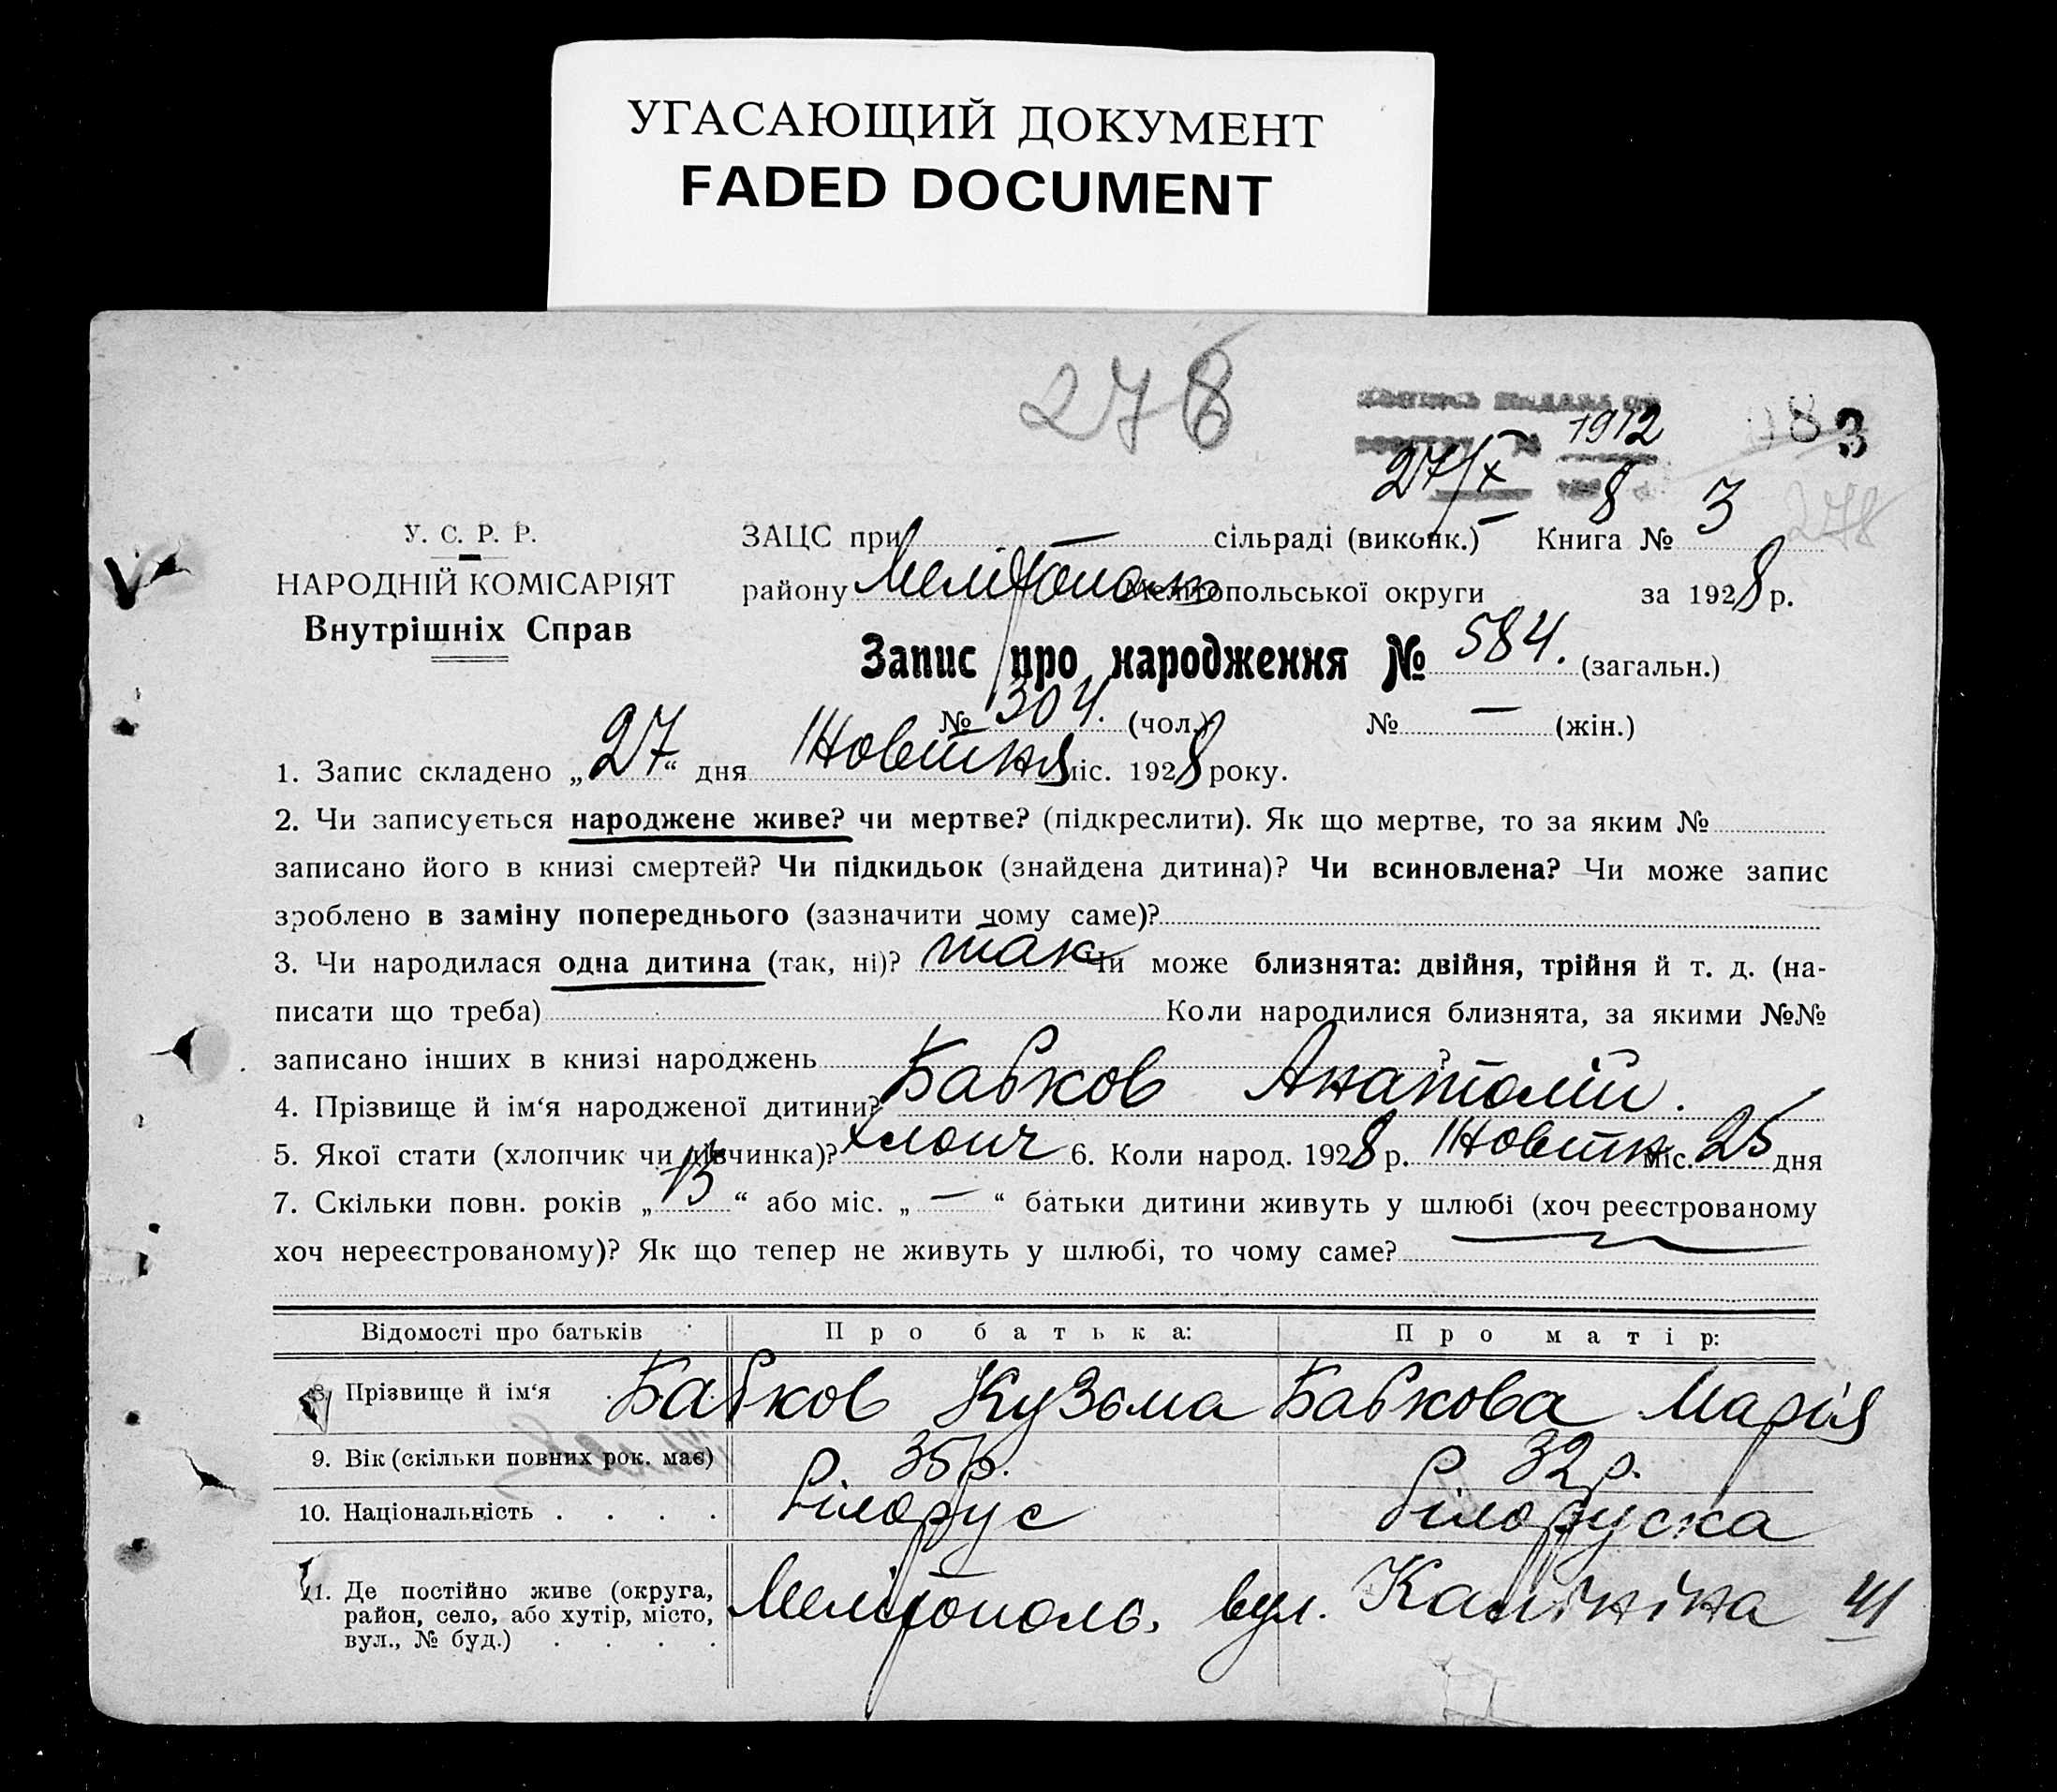 УГАСАЮЩИЙ ДОКУМЕНТ
FADED DOCUMENT
278
1912
27/X 8
83
278
У. С. Р. Р.
НАРОДНІЙ КОМІСАРІЯТ
Внутрішніх Справ
ЗАЦС при — сільраді (виконк.) — Книга № 3
району Мелітополь Мелітопольської округи за 1928 р.
Запис про народження № 584. (загальн.)
№ 304. (чол.) № — (жін.)
1. Запис складено „27“ дня Жовтня міс. 1928 року.
2. Чи записується народжене живе? чи мертве? (підкреслити). Як що мертве, то за яким №
записано його в книзі смертей? Чи підкидьок (знайдена дитина)? Чи всиновлена? Чи може запис
зроблено в заміну попереднього (зазначити чому саме)?
3. Чи народилася одна дитина (так, ні)? так Чи може близнята: двійня, трійня й т. д. (на-
писати що треба) Коли народилися близнята, за якими №№
записано інших в книзі народжень ?
4. Прізвище й ім‘я народженої дитини? Бабков Анатолій.
5. Якої стати (хлопчик чи дівчинка)? хлопч 6. Коли народ. 1928 р. Жовтн міс. 25 дня
7. Скільки повн. років „13“ або міс. „—“ батьки дитини живуть у шлюбі (хоч реєстрованому
хоч нереєстрованому)? Як що тепер не живуть у шлюбі, то чому саме?
Відомості про батьків Про батька: Про матір:
8. Прізвище й ім‘я Бабков Кузьма Бабкова Марія
9. Вік (скільки повних рок. має) 35 р. 32 р.
10. Національність . . . . білорус білоруска
11. Де постійно живе (округа,
район, село, або хутір, місто,
вул., № буд.) . . . . Мелітополь, вул. Калініна 41